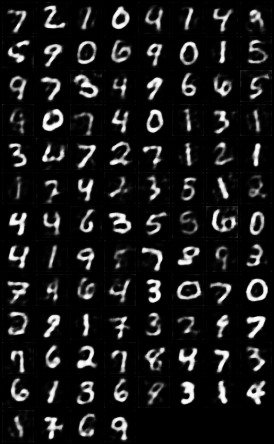 7 2 1 0 4 1 4 9
5 9 0 6 9 0 1 5
9 7 3 4 9 6 6 5
0 7 4 0 1 3 1
3 7 2 7 1 2 1
1 7 4 2 3 5 1 2
4 4 6 3 5 5 6 0
4 1 9 7 8 9 3
7 6 4 3 0 7 0
2 9 1 7 3 2 9 7
7 6 2 7 8 4 7 3
6 1 3 6 9 3 1 4
1 7 6 9